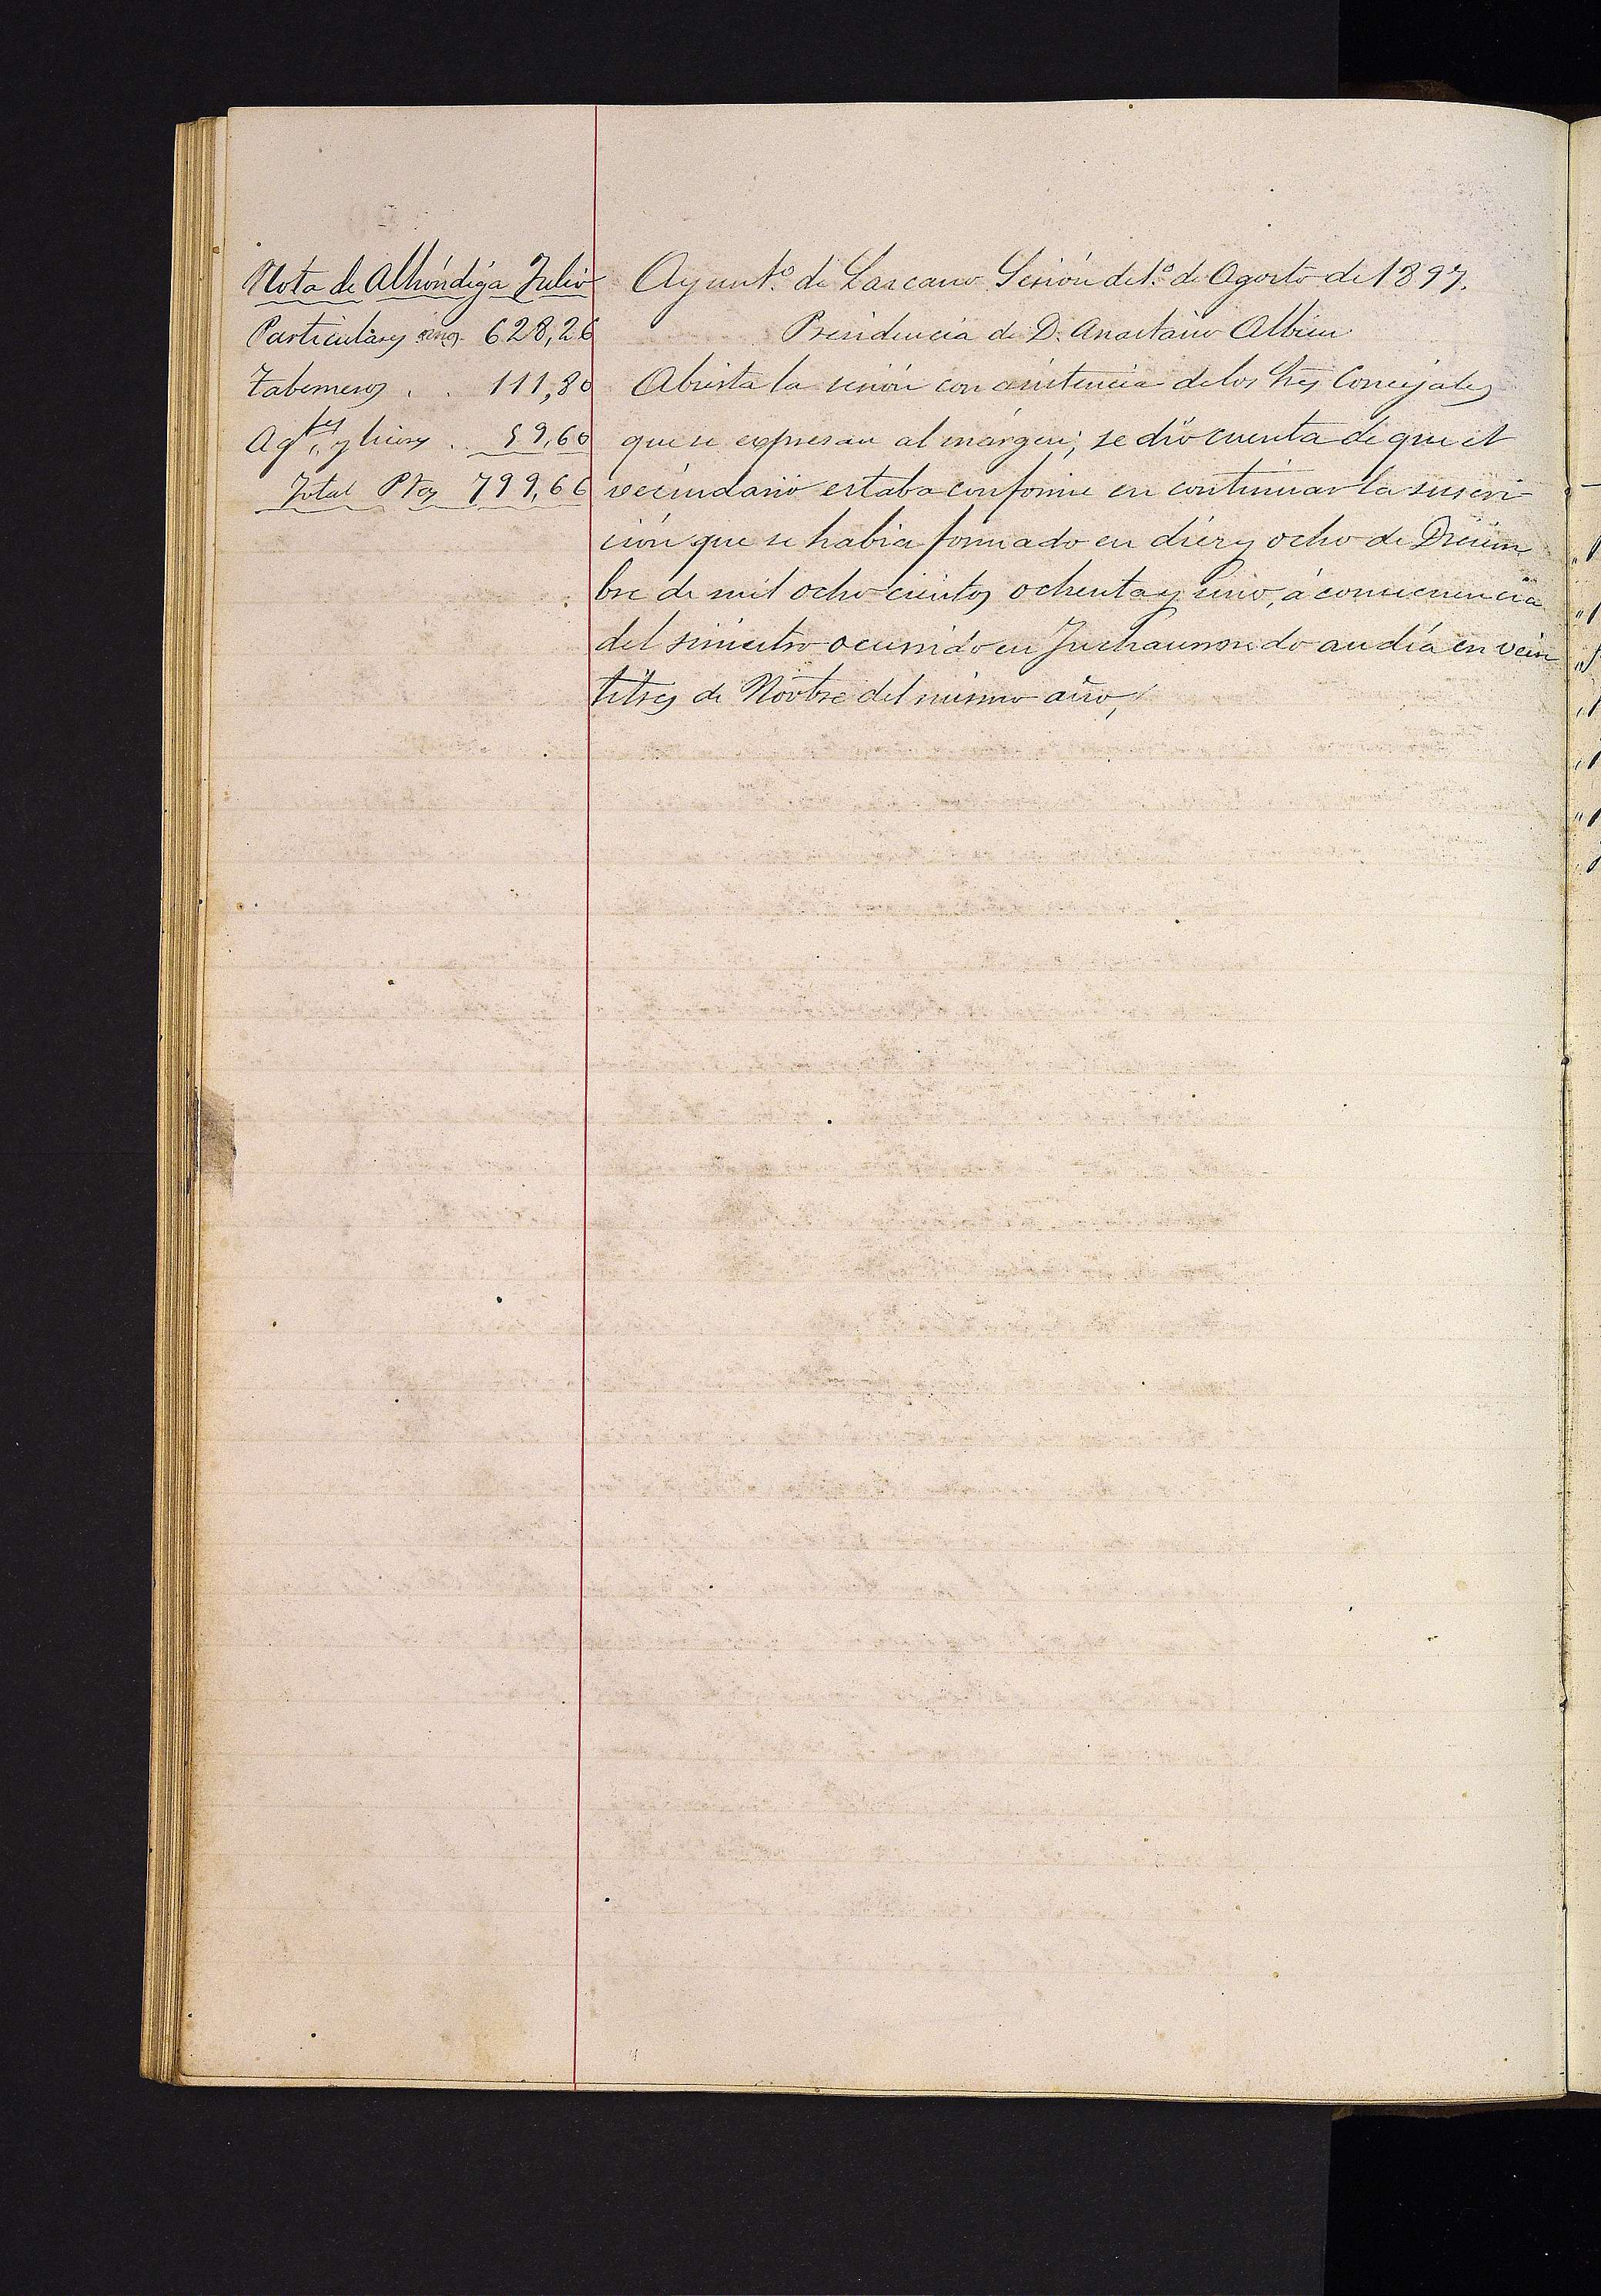 Nota de Alhóndiga Julio
Particulares vino 628,26
Taberneros . . 111,80
Ag.tes y licores . 59,60
Total Ptas 799,66
Ayunt.º de Lazcano Sesión del 1.º de Agosto de 1897.
Presidencia de D. Anastasio Albisu
Abierta la sesión con asistencia de los Sres Concejales
que se expresan al márgen; se dió cuenta de que el
vecindario estaba conforme en continuar la suscri-
ción que se habia formado en diez y ocho de Diciem
bre de mil ocho cientos ochenta y uno, á consecuencia
del siniestro ocurrido en andía en vein
titres de Novbre del mismo año,